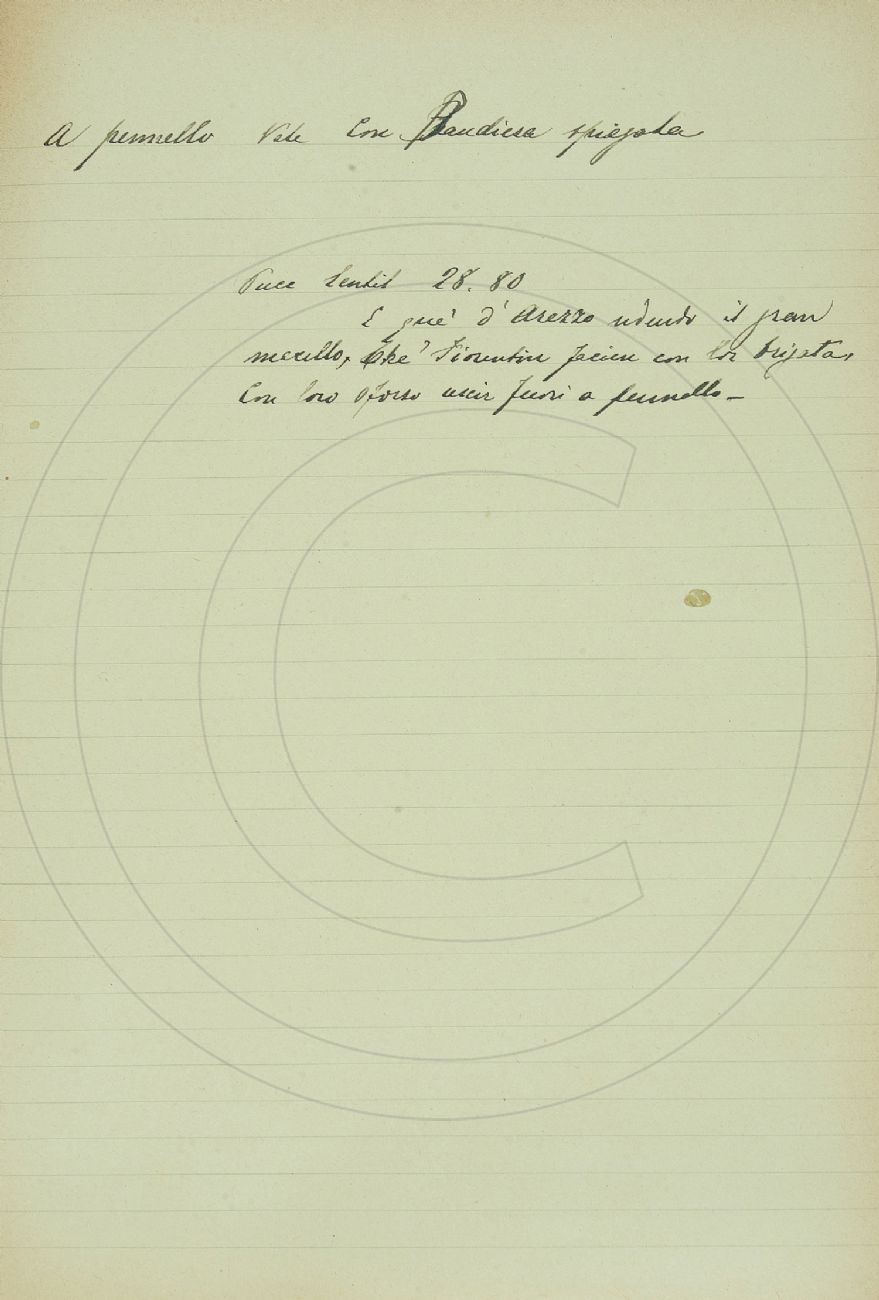 A pennello Vale Con Bandiera spiegata
Pucc Centil 28. 80
E que' d' Arezzo udendo il gran
macello, Che' Fiorentin facien con lor brigata,
Con loro sforzo uscir fuori a pennello –